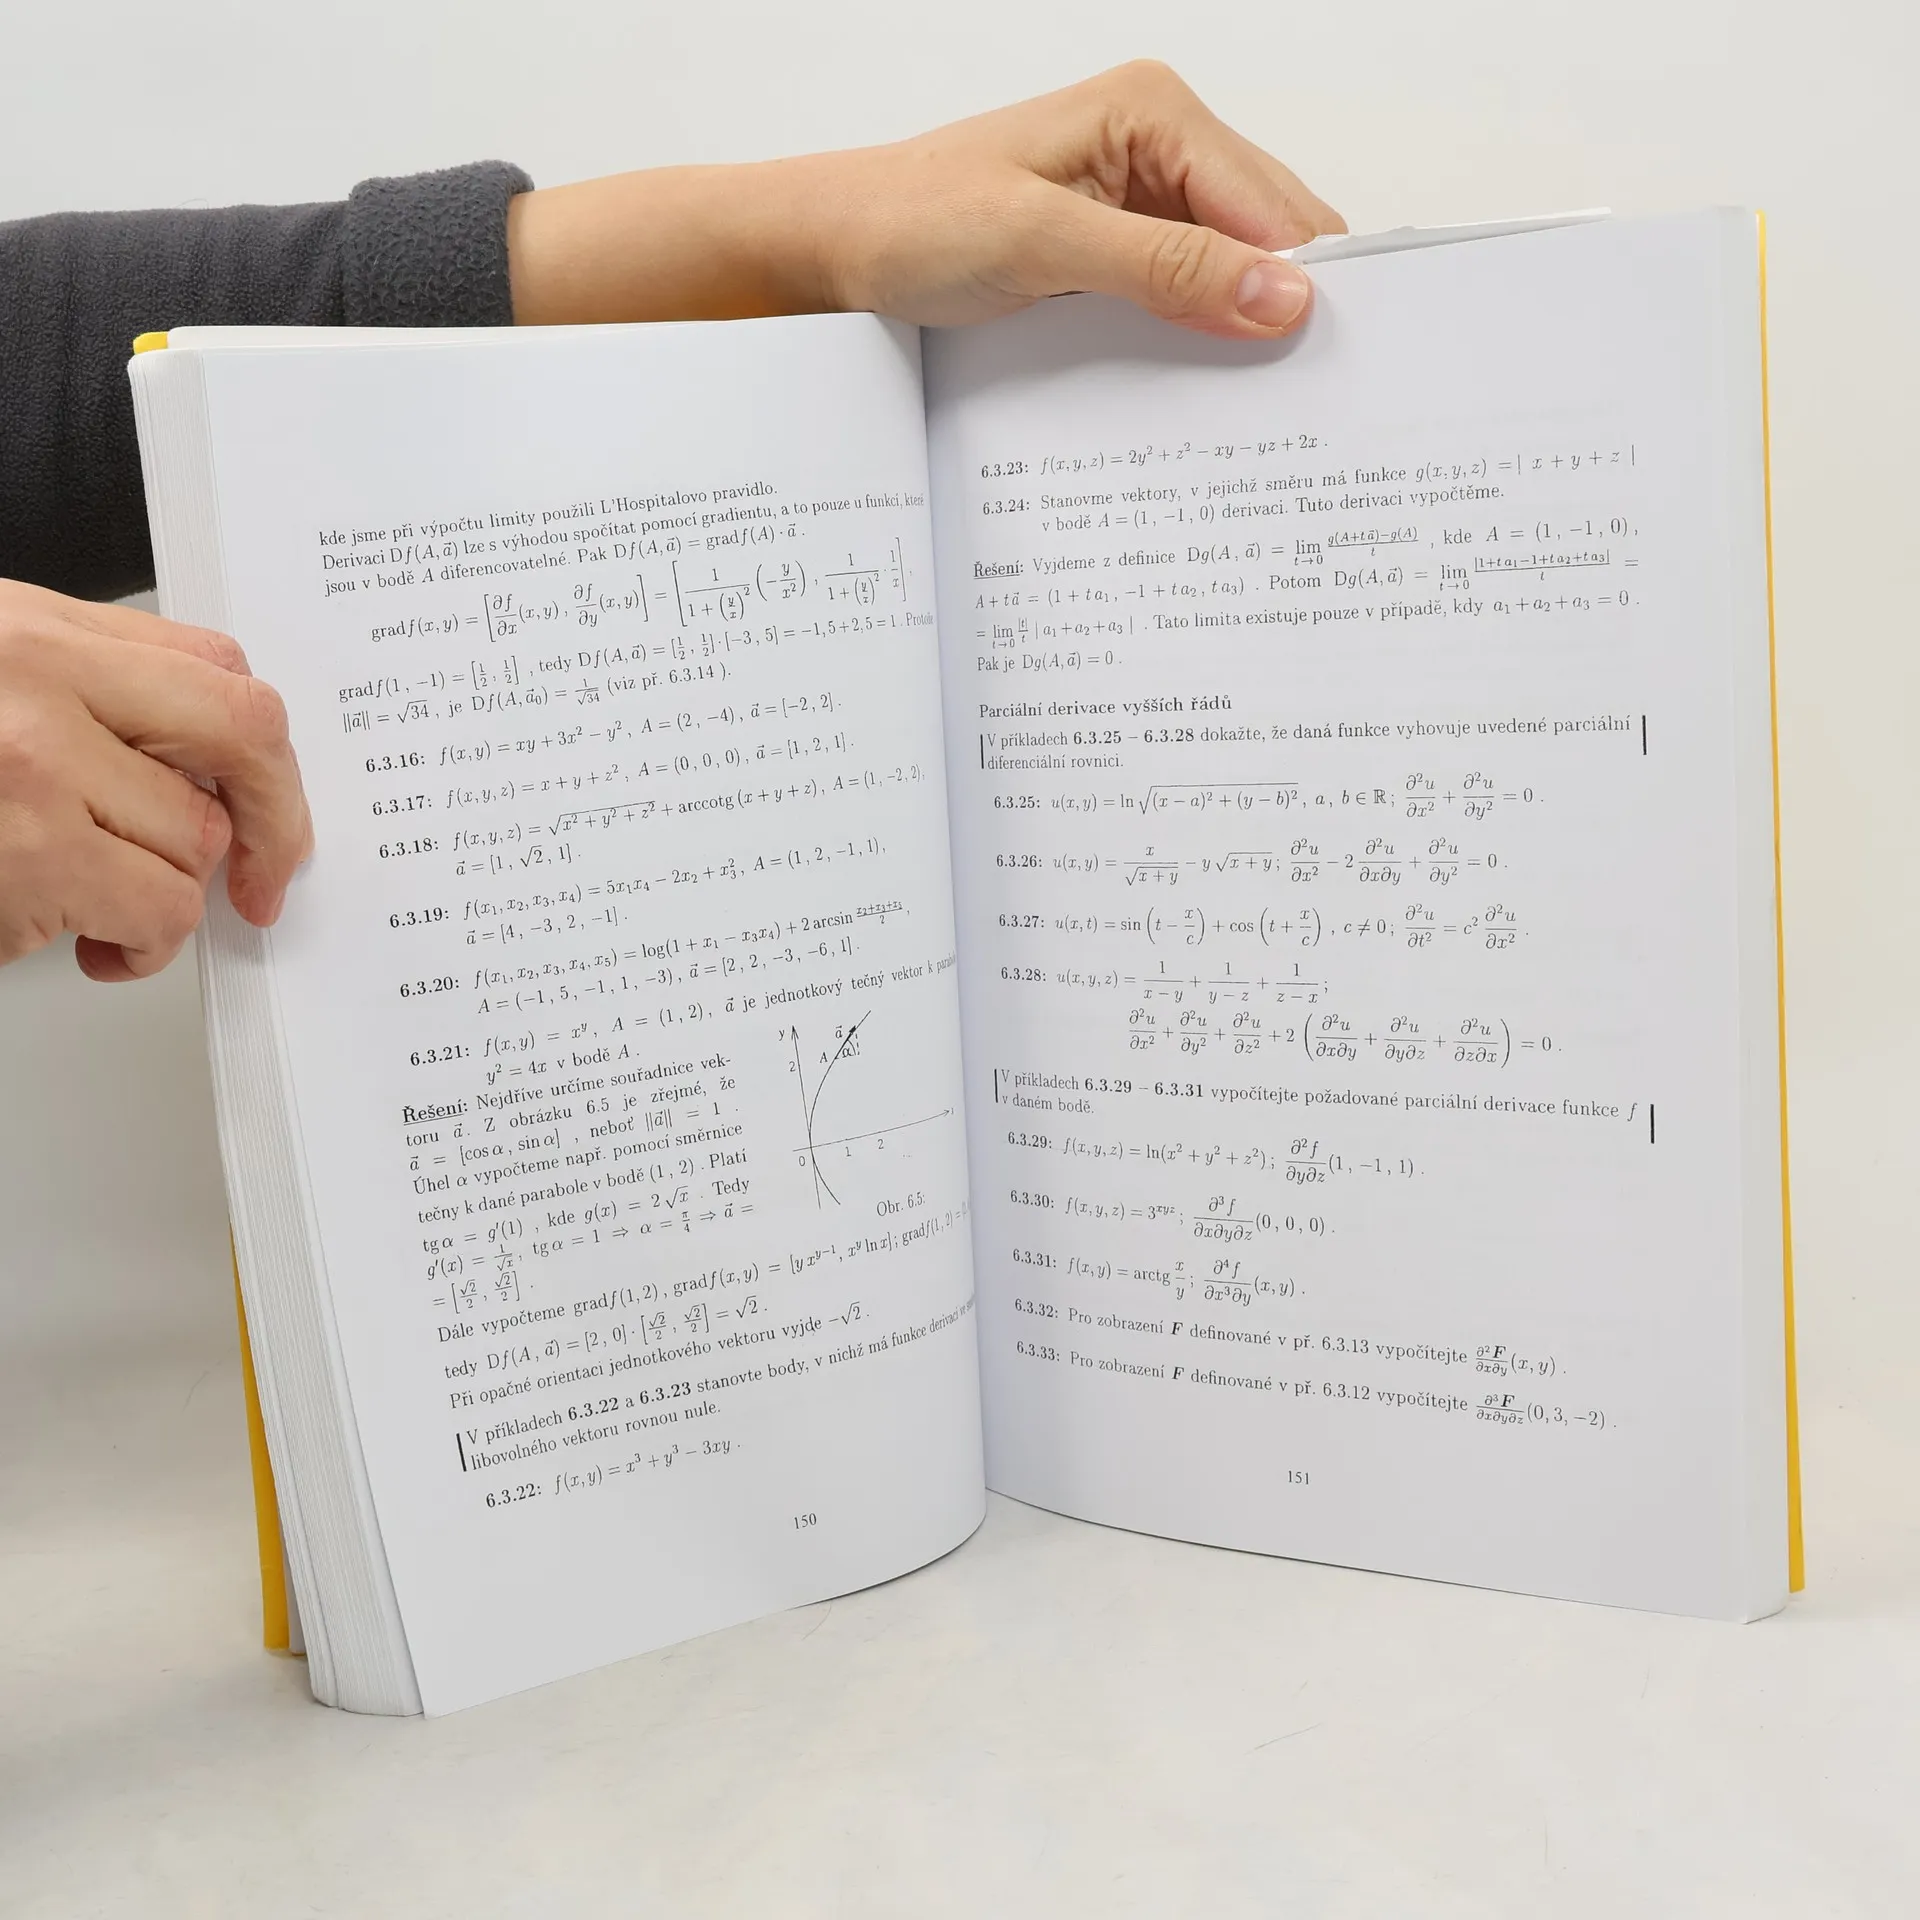 kde jsme při výpočtu limity použili L'Hospitalovo pravidlo.
Derivaci Df(A, a⃗) lze s výhodou spočítat pomocí gradientu, a to pouze u funkcí, které
jsou v bodě A diferencovatelné. Pak Df(A, a⃗) = gradf(A) · a⃗ .
gradf(x, y) = [∂f/∂x (x, y) , ∂f/∂y (x, y)] = [1/(1 + (y/x)²) (−y/x²) , 1/(1 + (y/x)²) · 1/x] .
gradf(1 , −1) = [1/2 , 1/2] , tedy Df(A, a⃗) = [1/2 , 1/2] · [−3 , 5] = −1,5+2,5 = 1 . Protože
||a⃗|| = √34 , je Df(A, a⃗₀) = 1/√34 (viz př. 6.3.14 ).
6.3.16: f(x, y) = xy + 3x² − y² , A = (2, −4) , a⃗ = [−2, 2] .
6.3.17: f(x, y, z) = x + y + z² , A = (0 , 0 , 0) , a⃗ = [1 , 2 , 1] .
6.3.18: f(x, y, z) = √(x² + y² + z²) + arccotg (x + y + z) , A = (1 , −2, 2),
a⃗ = [1 , √2 , 1] .
6.3.19: f(x₁, x₂, x₃, x₄) = 5x₁x₄ − 2x₂ + x₃² , A = (1 , 2 , −1, 1),
a⃗ = [4 , −3 , 2 , −1] .
6.3.20: f(x₁, x₂, x₃, x₄, x₅) = log(1 + x₁ − x₃x₄) + 2 arcsin (x₂+x₃+x₅)/2 ,
A = (−1 , 5 , −1 , 1 , −3) , a⃗ = [2 , 2 , −3 , −6 , 1] .
6.3.21: f(x, y) = xʸ , A = (1 , 2) , a⃗ je jednotkový tečný vektor k
y² = 4x v bodě A .
Řešení: Nejdříve určíme souřadnice vek-
toru a⃗. Z obrázku 6.5 je zřejmé, že
a⃗ = [cos α , sin α] , neboť ||a⃗|| = 1 .
Úhel α vypočteme např. pomocí směrnice
tečny k dané parabole v bodě (1 , 2) . Platí
tg α = g′(1) , kde g(x) = 2 √x . Tedy
g′(x) = 1/√x , tg α = 1 ⇒ α = π/4 ⇒ a⃗ =
= [√2/2 , √2/2] .
y
2
A
a⃗
α
0
1
2
Obr. 6.5:
Dále vypočteme gradf(1,2) , gradf(x, y) = [y xʸ⁻¹ , xʸ ln x] ; gradf(1, 2) =
tedy Df(A , a⃗) = [2 , 0] · [√2/2 , √2/2] = √2 .
Při opačné orientaci jednotkového vektoru vyjde −√2 .
V příkladech 6.3.22 a 6.3.23 stanovte body, v nichž má funkce derivaci ve
libovolného vektoru rovnou nule.
6.3.22: f(x, y) = x³ + y³ − 3xy .
150
6.3.23: f(x, y, z) = 2y² + z² − xy − yz + 2x .
6.3.24: Stanovme vektory, v jejichž směru má funkce g(x, y, z) = | x + y + z |
v bodě A = (1 , −1 , 0) derivaci. Tuto derivaci vypočtěme.
Řešení: Vyjdeme z definice Dg(A , a⃗) = lim t→0 (g(A+t a⃗)−g(A))/t , kde A = (1 , −1 , 0) ,
A + t a⃗ = (1 + t a₁ , −1 + t a₂ , t a₃) . Potom Dg(A, a⃗) = lim t→0 |1+t a₁−1+t a₂+t a₃|/t =
= lim t→0 |t|/t | a₁ + a₂ + a₃ | . Tato limita existuje pouze v případě, kdy a₁ + a₂ + a₃ = 0 .
Pak je Dg(A, a⃗) = 0 .
Parciální derivace vyšších řádů
V příkladech 6.3.25 – 6.3.28 dokažte, že daná funkce vyhovuje uvedené parciální
diferenciální rovnici.
6.3.25: u(x, y) = ln √((x − a)² + (y − b)²) , a , b ∈ ℝ ; ∂²u/∂x² + ∂²u/∂y² = 0 .
6.3.26: u(x, y) = x/√(x + y) − y √(x + y) ; ∂²u/∂x² − 2 ∂²u/∂x∂y + ∂²u/∂y² = 0 .
6.3.27: u(x, t) = sin (t − x/c) + cos (t + x/c) , c ≠ 0 ; ∂²u/∂t² = c² ∂²u/∂x² .
6.3.28: u(x, y, z) = 1/(x − y) + 1/(y − z) + 1/(z − x) ;
∂²u/∂x² + ∂²u/∂y² + ∂²u/∂z² + 2 (∂²u/∂x∂y + ∂²u/∂y∂z + ∂²u/∂z∂x) = 0 .
V příkladech 6.3.29 – 6.3.31 vypočítejte požadované parciální derivace funkce f
v daném bodě.
6.3.29: f(x, y, z) = ln(x² + y² + z²) ; ∂²f/∂y∂z (1 , −1 , 1) .
6.3.30: f(x, y, z) = 3ˣʸᶻ ; ∂³f/∂x∂y∂z (0 , 0 , 0) .
6.3.31: f(x, y) = arctg x/y ; ∂⁴f/∂x³∂y (x, y) .
6.3.32: Pro zobrazení F definované v př. 6.3.13 vypočítejte ∂²F/∂x∂y (x, y) .
6.3.33: Pro zobrazení F definované v př. 6.3.12 vypočítejte ∂³F/∂x∂y∂z (0, 3, −2) .
151